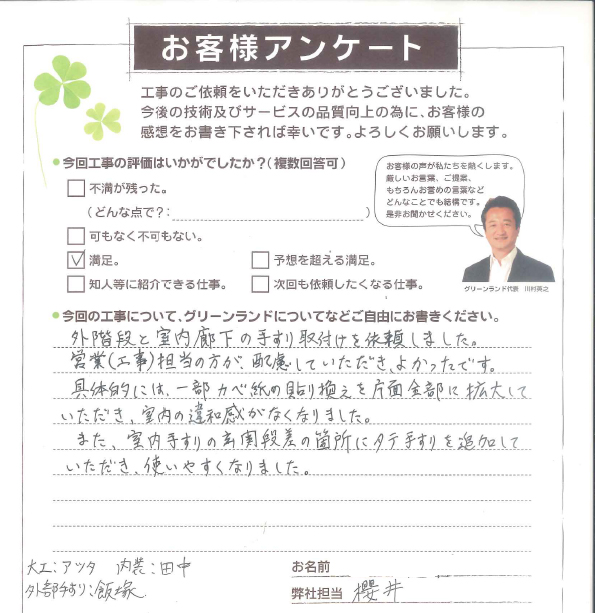 お客様アンケート
工事のご依頼をいただきありがとうございました。
今後の技術及びサービスの品質向上の為に、お客様の
感想をお書き下されば幸いです。よろしくお願いします。
●今回工事の評価はいかがでしたか?(複数回答可)
不満が残った。
(どんな点で?:　)
可もなく不可もない。
満足。
予想を超える満足。
知人等に紹介できる仕事。
次回も依頼したくなる仕事。
お客様の声が私たちを熱くします。
厳しいお言葉、ご提案、
もちろんお誉めの言葉など
どんなことでも結構です。
是非お聞かせください。
グリーンランド代表　川村英之
●今回の工事について、グリーンランドについてなどご自由にお書きください。
外階段と室内廊下の手すり取付けを依頼しました。
営業(工事)担当の方が、配慮していただき、よかったです。
具体的には、一部カベ紙の貼り換えを片面全部に拡大して
いただき、室内の違和感がなくなりました。
また、室内手すりの玄関段差の箇所にタテ手すりを追加して
いただき、使いやすくなりました。
大工:アツタ　内装:田中
外部手すり:飯塚
お名前
弊社担当　櫻井